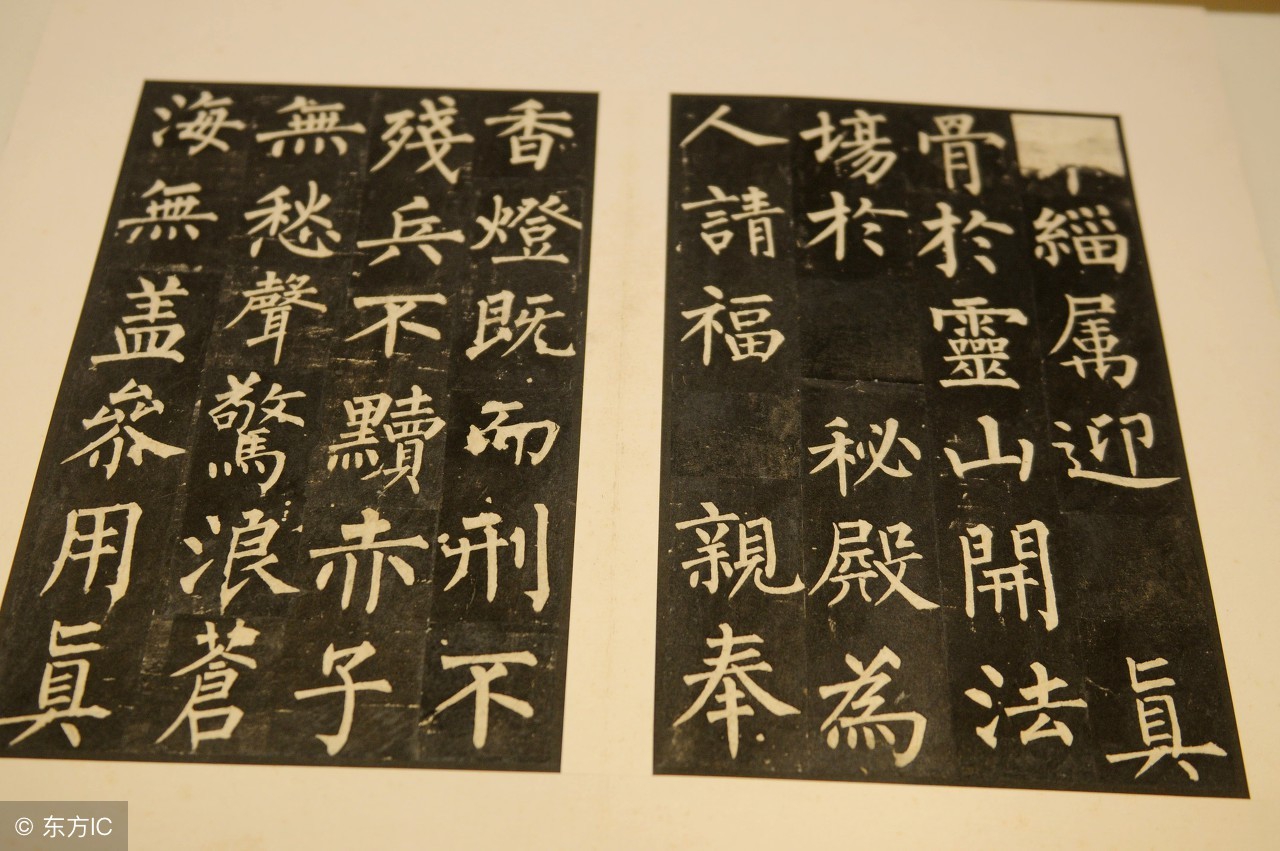 緇属迎真
骨於靈山開法
場於秘殿為
人請福親奉
香燈既而刑不
殘兵不黷赤子
無愁聲驚浪蒼
海無盖叅用真
© 东方IC